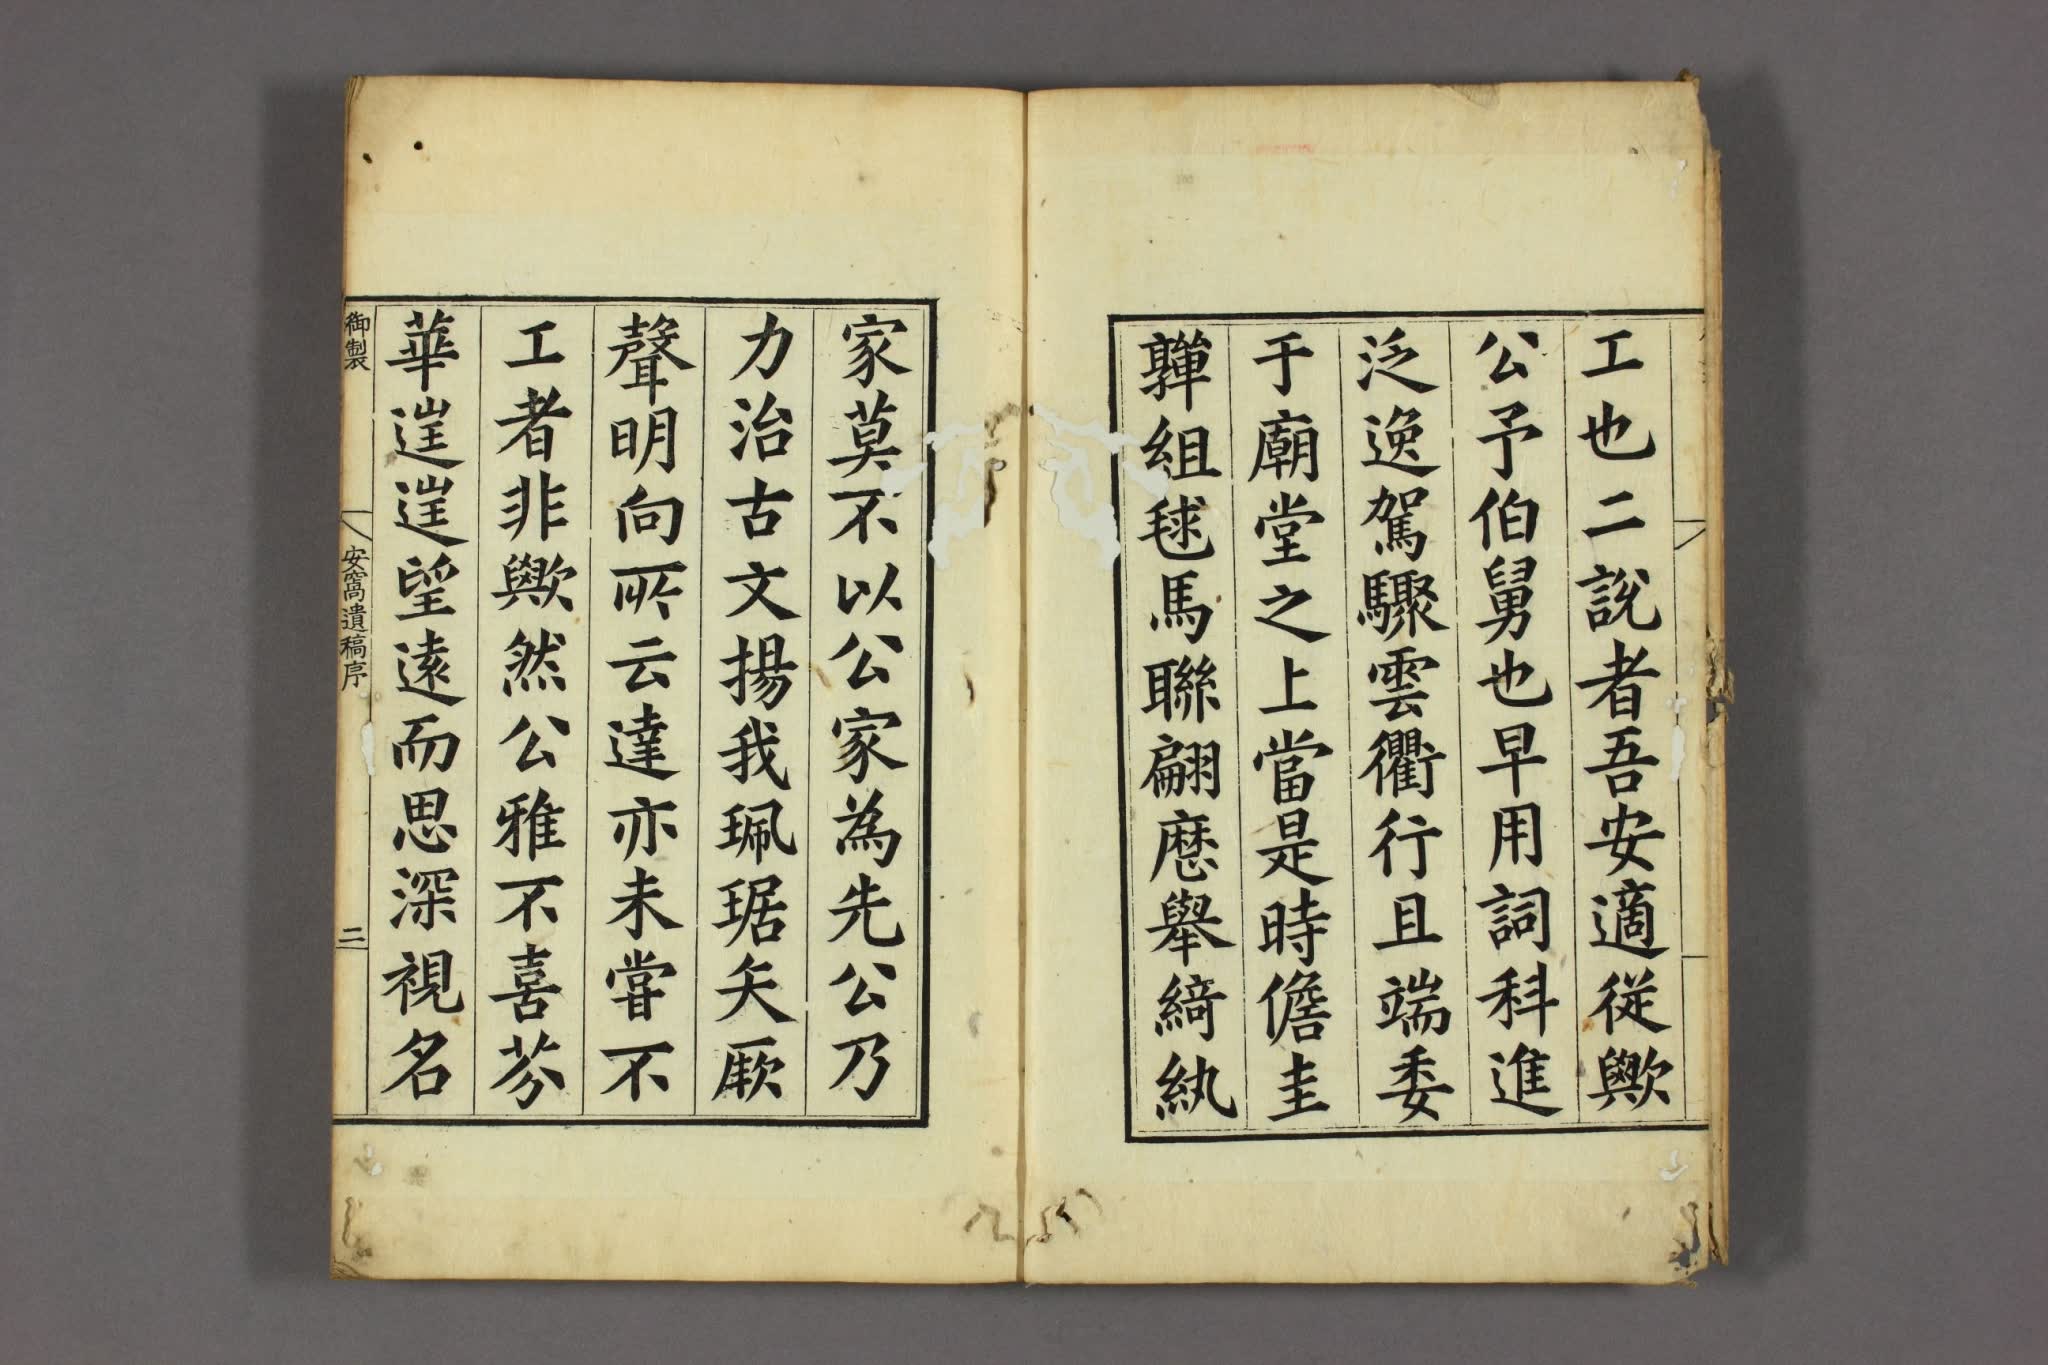 工也二說者吾安適從歟
公予伯舅也早用詞科進
泛逸駕驟雲衢行且端委
于廟堂之上當是時儋圭
韠組毬馬聯翩麽舉綺紈
家莫不以公家為先公乃
力治古文揚我珮琚矢厥
聲明向所云達亦未嘗不
工者非歟然公雅不喜芬
華逬逬望遠而思深視名
御製
安窩遺稿序
二